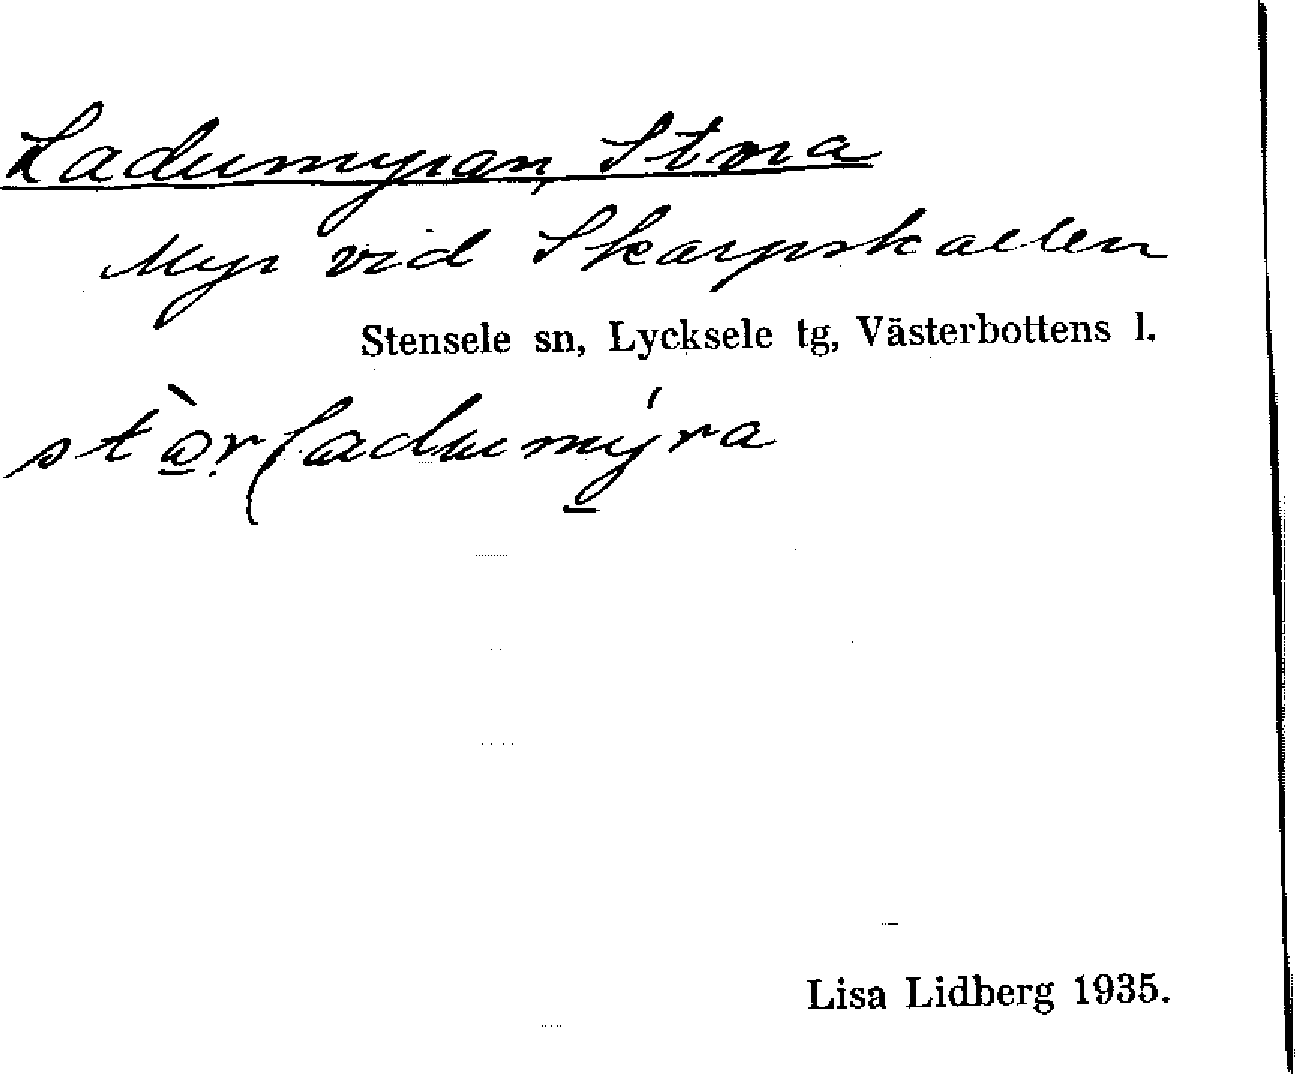 Ladumyran, Stora
Myr vid Skarpskallen
Stensele sn, Lycksele tg, Västerbottens l.
stòr ladumýra
Lisa Lidberg 1935.